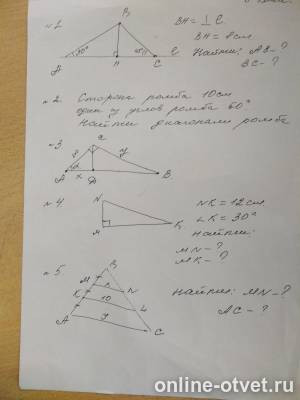 №1
B
BH = ⊥ l.
BH = 8 см
30°
45°
l
Найти: AB - ?
BC - ?
A H C
№2. Сторона ромба 10 см
один из углов ромба 60°
Найти диагонали ромба
№3
C
8 y
A x D B
№4
N
NK = 12 см
∠K = 30°
K
Найти:
M
MN - ?
MK - ?
№5
B
M N
Найти: MN - ?
K 10 L
A y C
AC - ?
online-otvet.ru